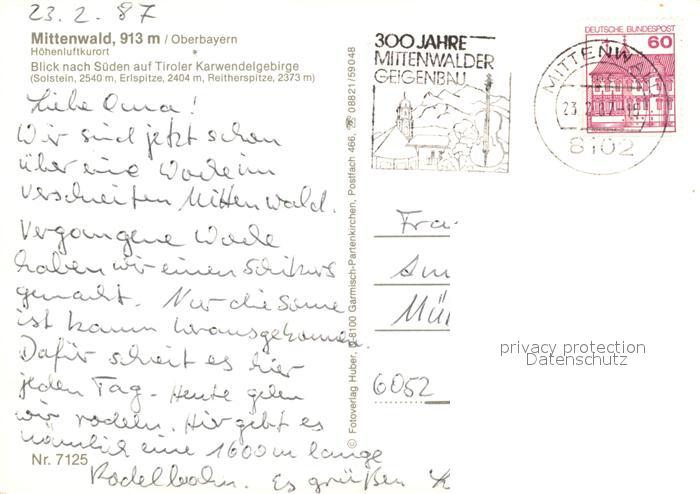 23. 2. 87
Mittenwald, 913 m / Oberbayern
Höhenluftkurort
Blick nach Süden auf Tiroler Karwendelgebirge
(Solstein, 2540 m, Erlspitze, 2404 m, Reitherspitze, 2373 m)
Liebe Oma!
Wir sind jetzt schon
über eine Woche im
verschneiten Mittenwald.
Vergangene Woche
haben wir einen Skikurs
gemacht. Nur die Sonne
ist kaum herausgekommen.
Dafür schneit es hier
jeden Tag. Heute gehen
wir rodeln. Hier gibt es
nämlich eine 1600 m lange
Rodelbahn. Es grüßen
Nr. 7125
© Fotoverlag Huber, D-8100 Garmisch-Partenkirchen, Postfach 466, ☎ 08821/59048
300 JAHRE
MITTENWALDER
GEIGENBAU
MITTENW
23.2.87
8102
DEUTSCHE BUNDESPOST
60
Fra
Am
Mü
6052
privacy protection
Datenschutz